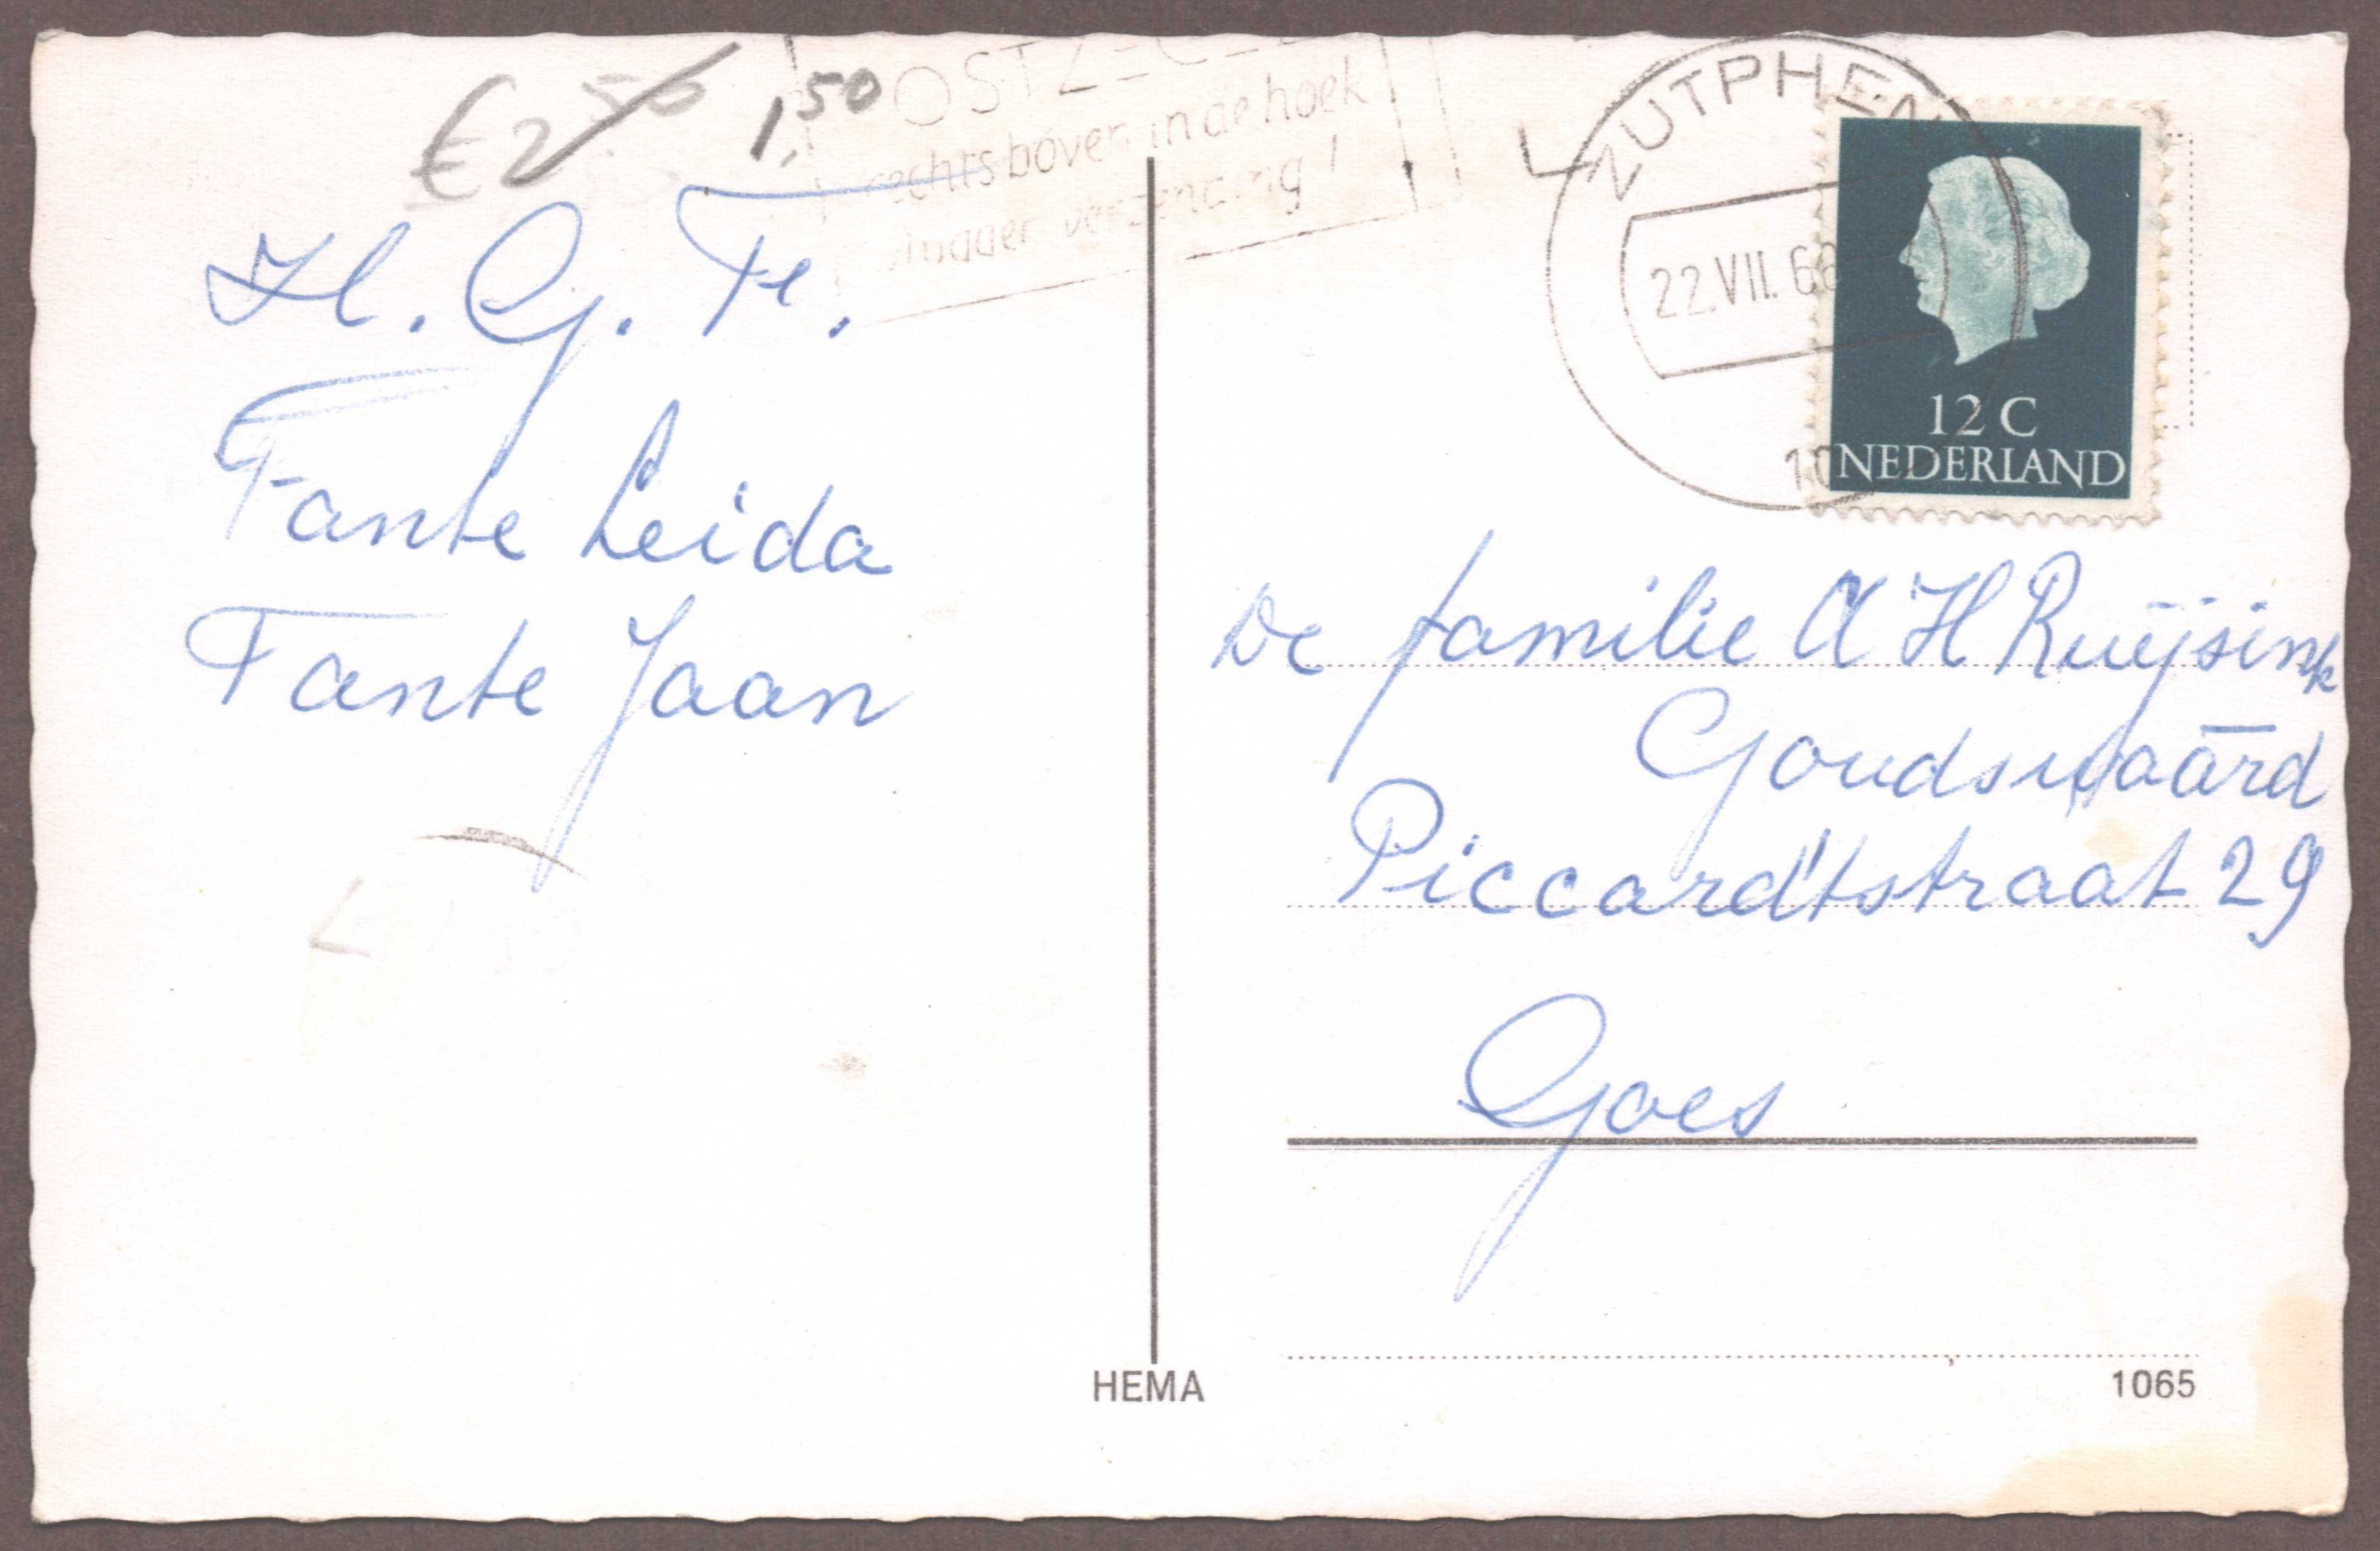 €2 50 1,50
POSTZEGEL
rechts boven in de hoek
vlugger verzending!
ZUTPHEN
22.VII.66
10
12 C
NEDERLAND
H. G. Fr.
Tante Leida
Tante Jaan
De familie A H Ruÿsink
Goudswaard
Piccardtstraat 29
Goes
HEMA
1065